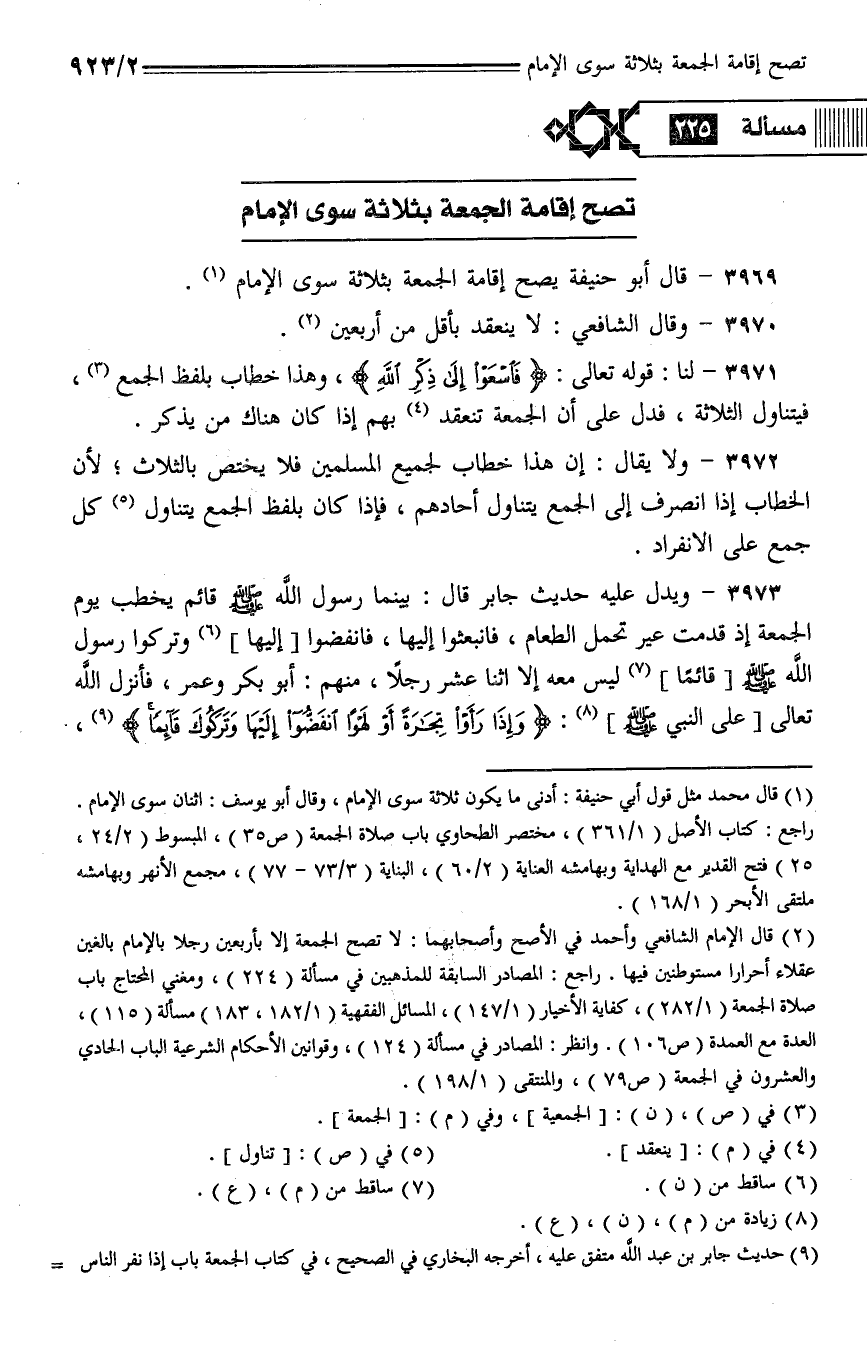 تصح إقامة الجمعة بثلاثة سوى الإمام ٩٢٣/٢
مسألة ٢٢٥
تصح إقامة الجمعة بثلاثة سوى الإمام
٣٩٦٩ - قال أبو حنيفة يصح إقامة الجمعة بثلاثة سوى الإمام (١) .
٣٩٧٠ - وقال الشافعي : لا ينعقد بأقل من أربعين (٢) .
٣٩٧١ - لنا : قوله تعالى : ﴿ فَٱسْعَوْا۟ إِلَىٰ ذِكْرِ ٱللَّهِ ﴾ ، وهذا خطاب بلفظ الجمع (٣) ،
فيتناول الثلاثة ، فدل على أن الجمعة تنعقد (٤) بهم إذا كان هناك من يذكر .
٣٩٧٢ - ولا يقال : إن هذا خطاب لجميع المسلمين فلا يختص بالثلاث ؛ لأن
الخطاب إذا انصرف إلى الجمع يتناول أحادهم ، فإذا كان بلفظ الجمع يتناول (٥) كل
جمع على الانفراد .
٣٩٧٣ - ويدل عليه حديث جابر قال : بينما رسول اللَّه ﷺ قائم يخطب يوم
الجمعة إذ قدمت عير تحمل الطعام ، فانبعثوا إليها ، فانفضوا [ إليها ] (٦) وتركوا رسول
اللَّه ﷺ [ قائمًا ] (٧) ليس معه إلا اثنا عشر رجلًا ، منهم : أبو بكر وعمر ، فأنزل اللَّه
تعالى [ على النبي ﷺ ] (٨) : ﴿ وَإِذَا رَأَوْا۟ تِجَـٰرَةً أَوْ لَهْوًا ٱنفَضُّوٓا۟ إِلَيْهَا وَتَرَكُوكَ قَآئِمًا ۚ ﴾ (٩) ،
(١) قال محمد مثل قول أبي حنيفة : أدنى ما يكون ثلاثة سوى الإمام ، وقال أبو يوسف : اثنان سوى الإمام .
راجع : كتاب الأصل ( ٣٦١/١ ) ، مختصر الطحاوي باب صلاة الجمعة ( ص٣٥ ) ، المبسوط ( ٢٤/٢ ،
٢٥ ) فتح القدير مع الهداية وبهامشه العناية ( ٦٠/٢ ) ، البناية ( ٧٣/٣ - ٧٧ ) ، مجمع الأنهر وبهامشه
ملتقى الأبحر ( ١٦٨/١ ) .
(٢) قال الإمام الشافعي وأحمد في الأصح وأصحابهما : لا تصح الجمعة إلا بأربعين رجلا بالإمام بالغين
عقلاء أحرارا مستوطنين فيها . راجع : المصادر السابقة للمذهبين في مسألة ( ٢٢٤ ) ، ومغني المحتاج باب
صلاة الجمعة ( ٢٨٢/١ ) ، كفاية الأخيار ( ١٤٧/١ ) ، المسائل الفقهية ( ١٨٢/١ ، ١٨٣ ) مسألة ( ١١٥ ) ،
العدة مع العمدة ( ص١٠٦ ) . وانظر : المصادر في مسألة ( ١٢٤ ) ، وقوانين الأحكام الشرعية الباب الحادي
والعشرون في الجمعة ( ص٧٩ ) ، والمنتقى ( ١٩٨/١ ) .
(٣) في ( ص ) ، ( ن ) : [ الجمعية ] ، وفي ( م ) : [ الجمعة ] .
(٤) في ( م ) : [ ينعقد ] . (٥) في ( ص ) : [ تناول ] .
(٦) ساقط من ( ن ) . (٧) ساقط من ( م ) ، ( ع ) .
(٨) زيادة من ( م ) ، ( ن ) ، ( ع ) .
(٩) حديث جابر بن عبد اللَّه متفق عليه ، أخرجه البخاري في الصحيح ، في كتاب الجمعة باب إذا نفر الناس =